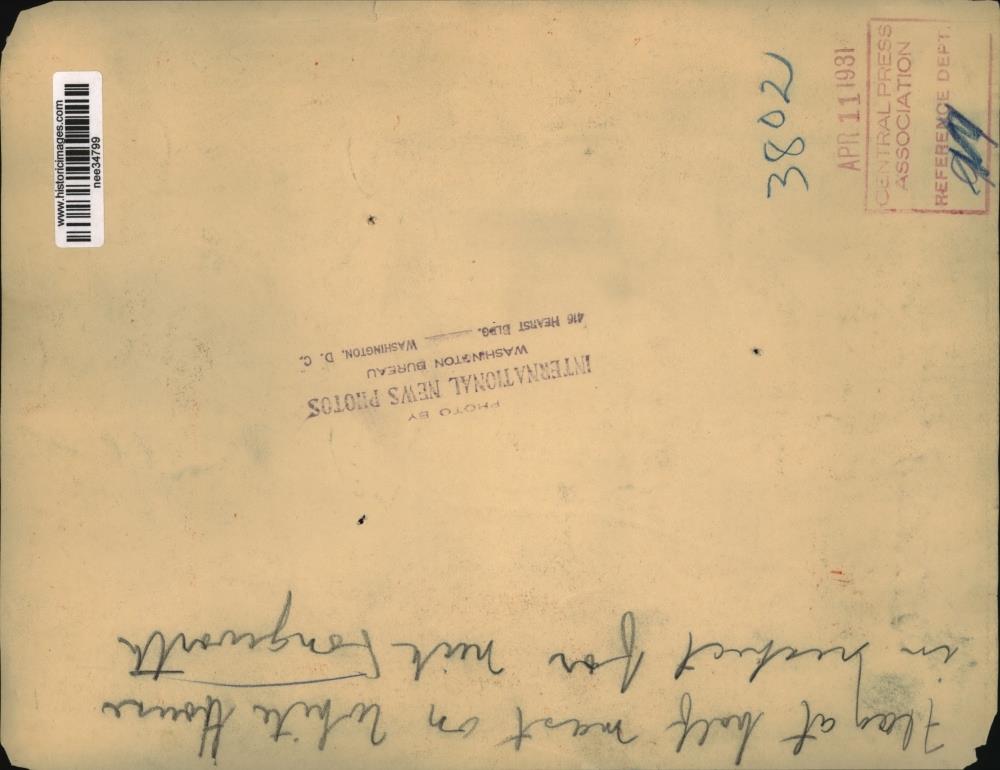 www.historicimages.com
nee34799
3802
APR 11 1931
CENTRAL PRESS
ASSOCIATION
REFERENCE DEPT.
PHOTO BY
INTERNATIONAL NEWS PHOTOS
WASHINGTON BUREAU
416 HEARST BLDG. WASHINGTON, D. C.
Flag at half mast on White House
in respect for Nick Longworth